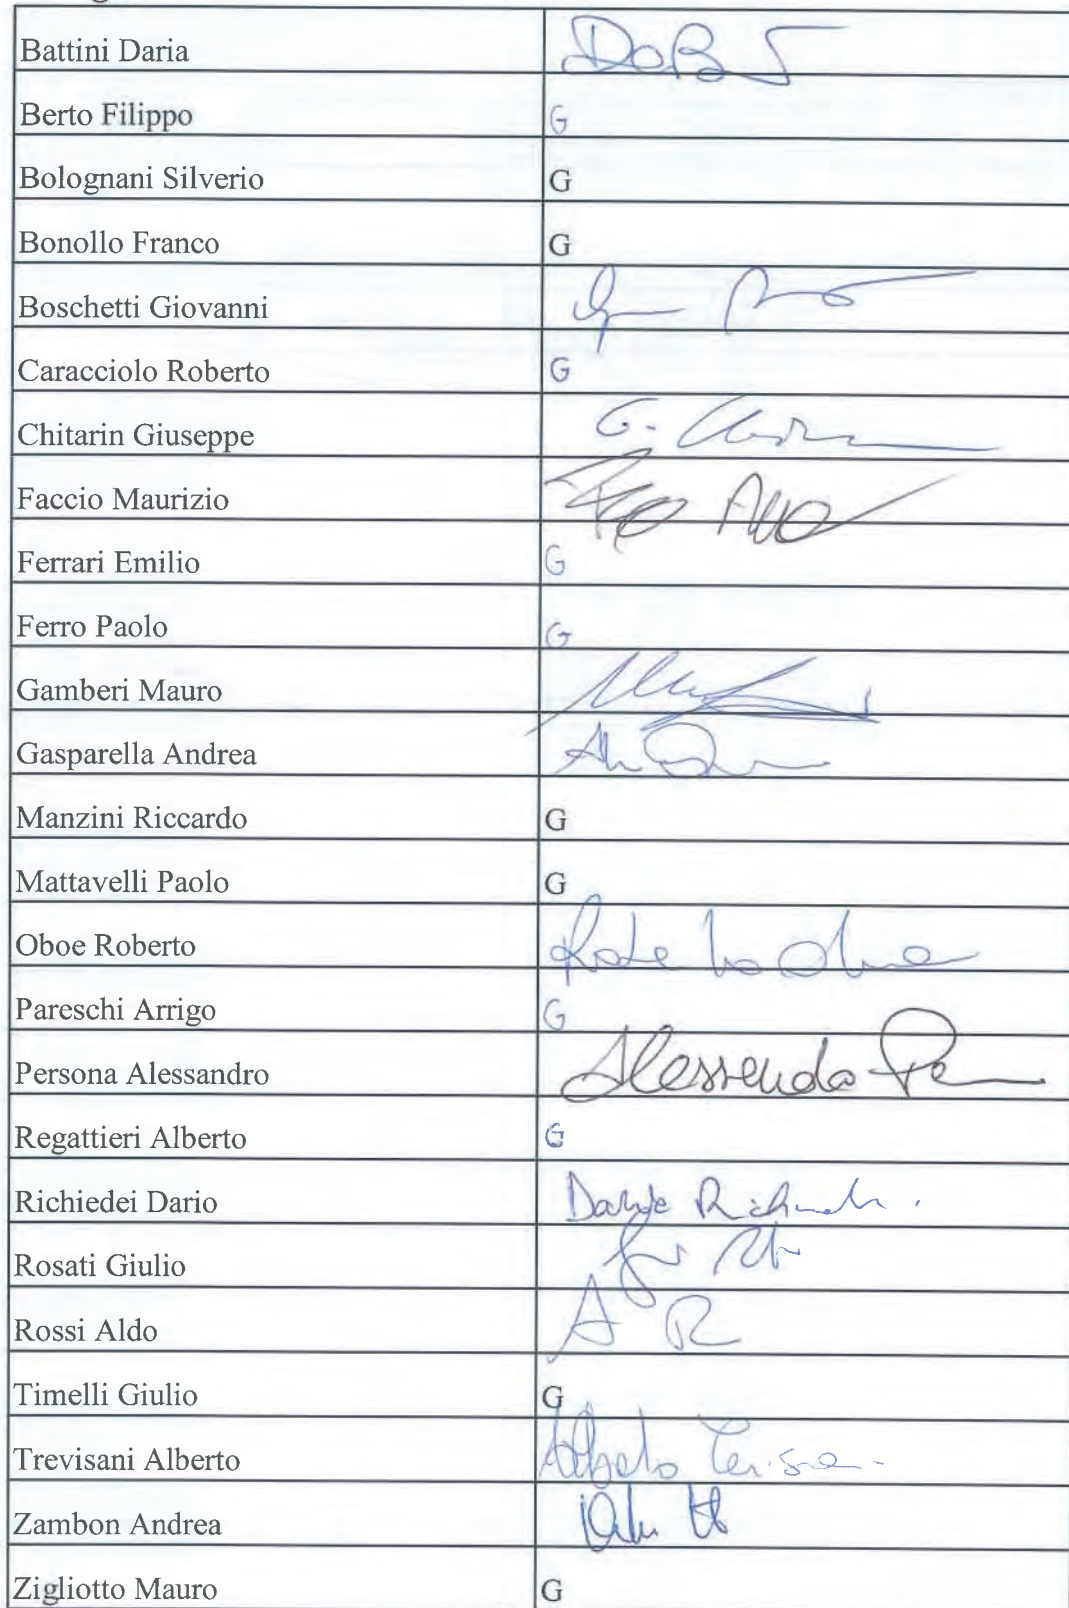 Battini Daria
Berto Filippo G
Bolognani Silverio G
Bonollo Franco G
Boschetti Giovanni
Caracciolo Roberto G
Chitarin Giuseppe G.
Faccio Maurizio
Ferrari Emilio G
Ferro Paolo G
Gamberi Mauro
Gasparella Andrea
Manzini Riccardo G
Mattavelli Paolo G
Oboe Roberto Roberto Oboe
Pareschi Arrigo G
Persona Alessandro Alessandro
Regattieri Alberto G
Richiedei Dario
Rosati Giulio
Rossi Aldo A R
Timelli Giulio G
Trevisani Alberto Alberto
Zambon Andrea
Zigliotto Mauro G